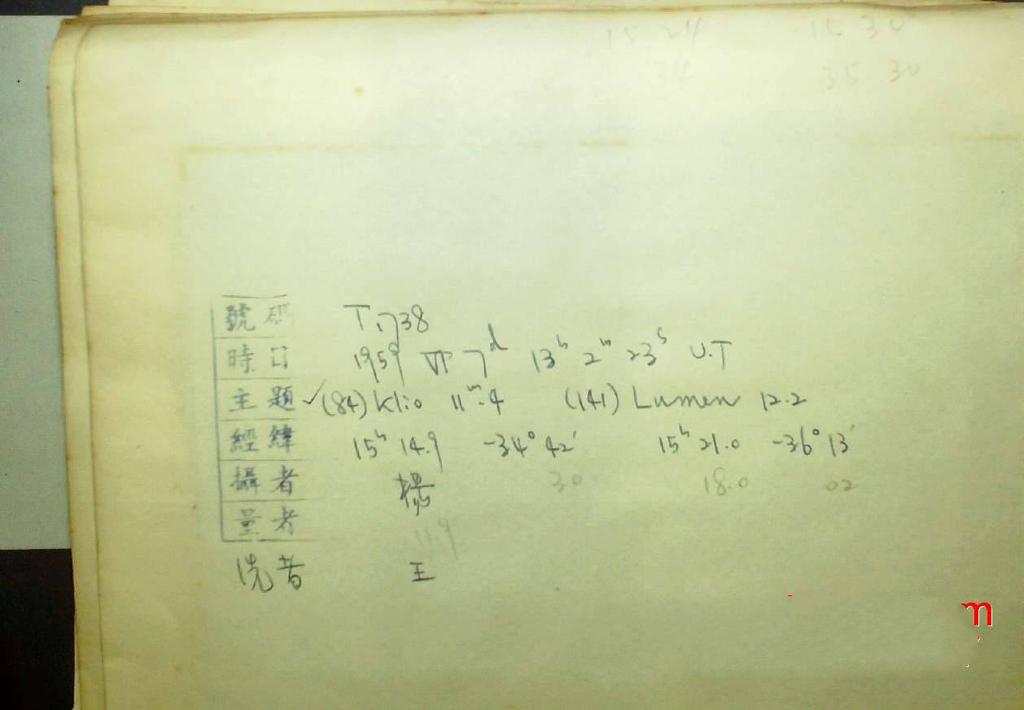 15 24 15 30
34 35 30
號碼 T1738
時日 1959 VI 7d 13h 2m 23s U.T
主題 ✓(84) Klio 11m.4 (141) Lumen 12.2
經緯 15h 14.9 -34° 42' 15h 21.0 -36° 13'
攝者 楊 30 18.0 02
量者
11.9
洗者 王
m